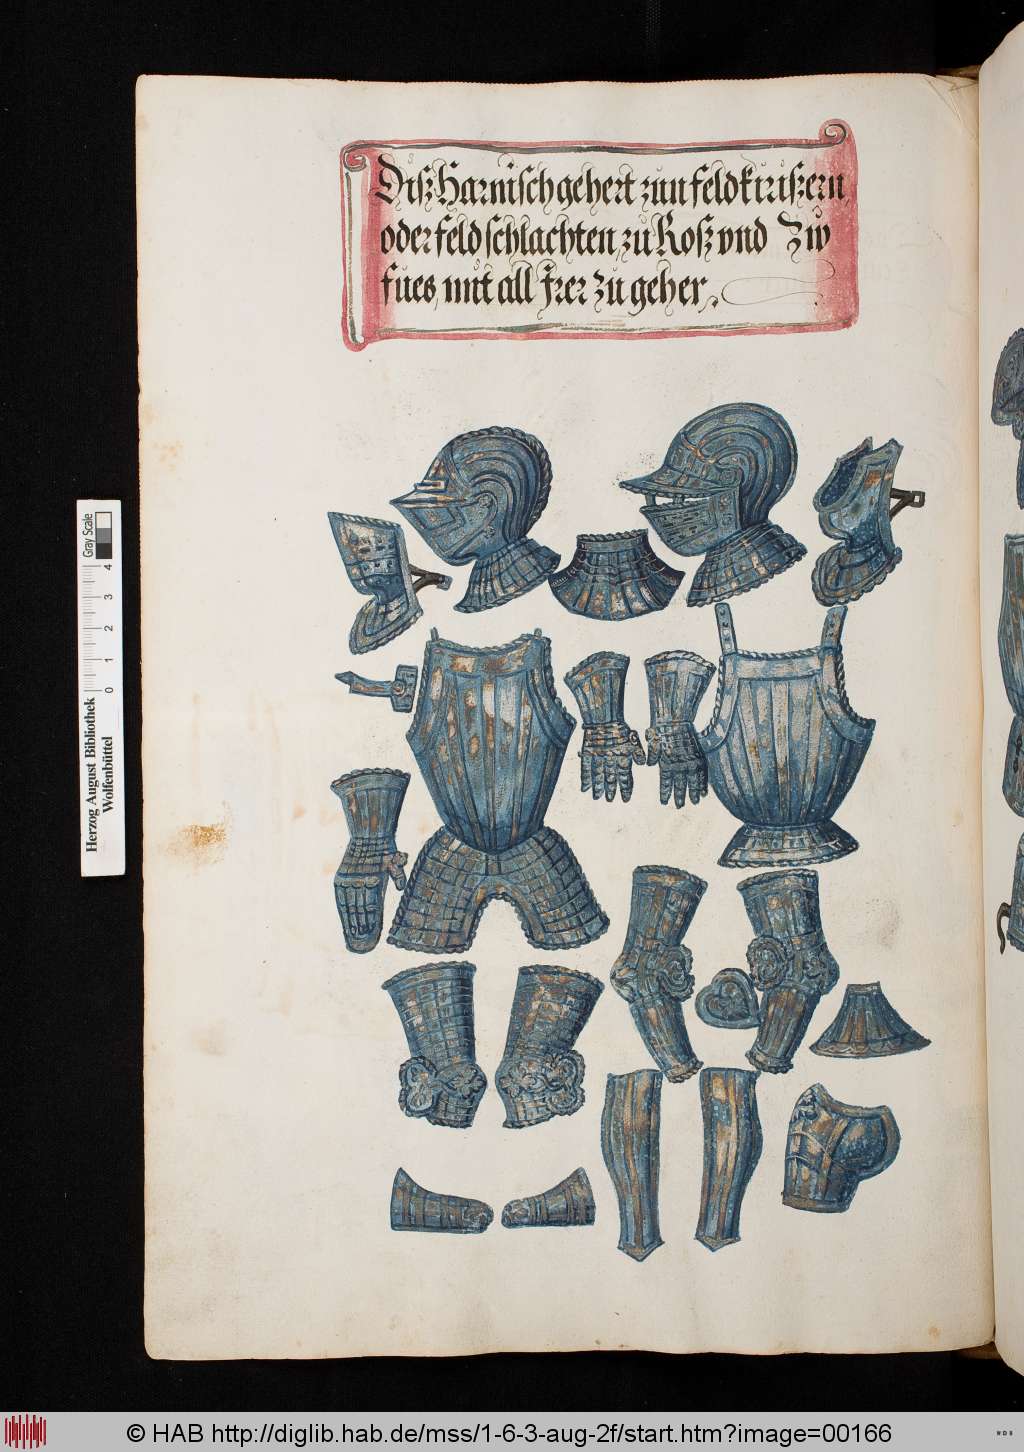 Disz Harnisch gehert zun feldkiriszern,
oder feldschlachten, zů Rosz vnd Zw
fues, mit all Irer Zů geher.
Herzog August Bibliothek
Wolfenbüttel
0 1 2 3 4
Gray Scale
© HAB http://diglib.hab.de/mss/1-6-3-aug-2f/start.htm?image=00166
WDB